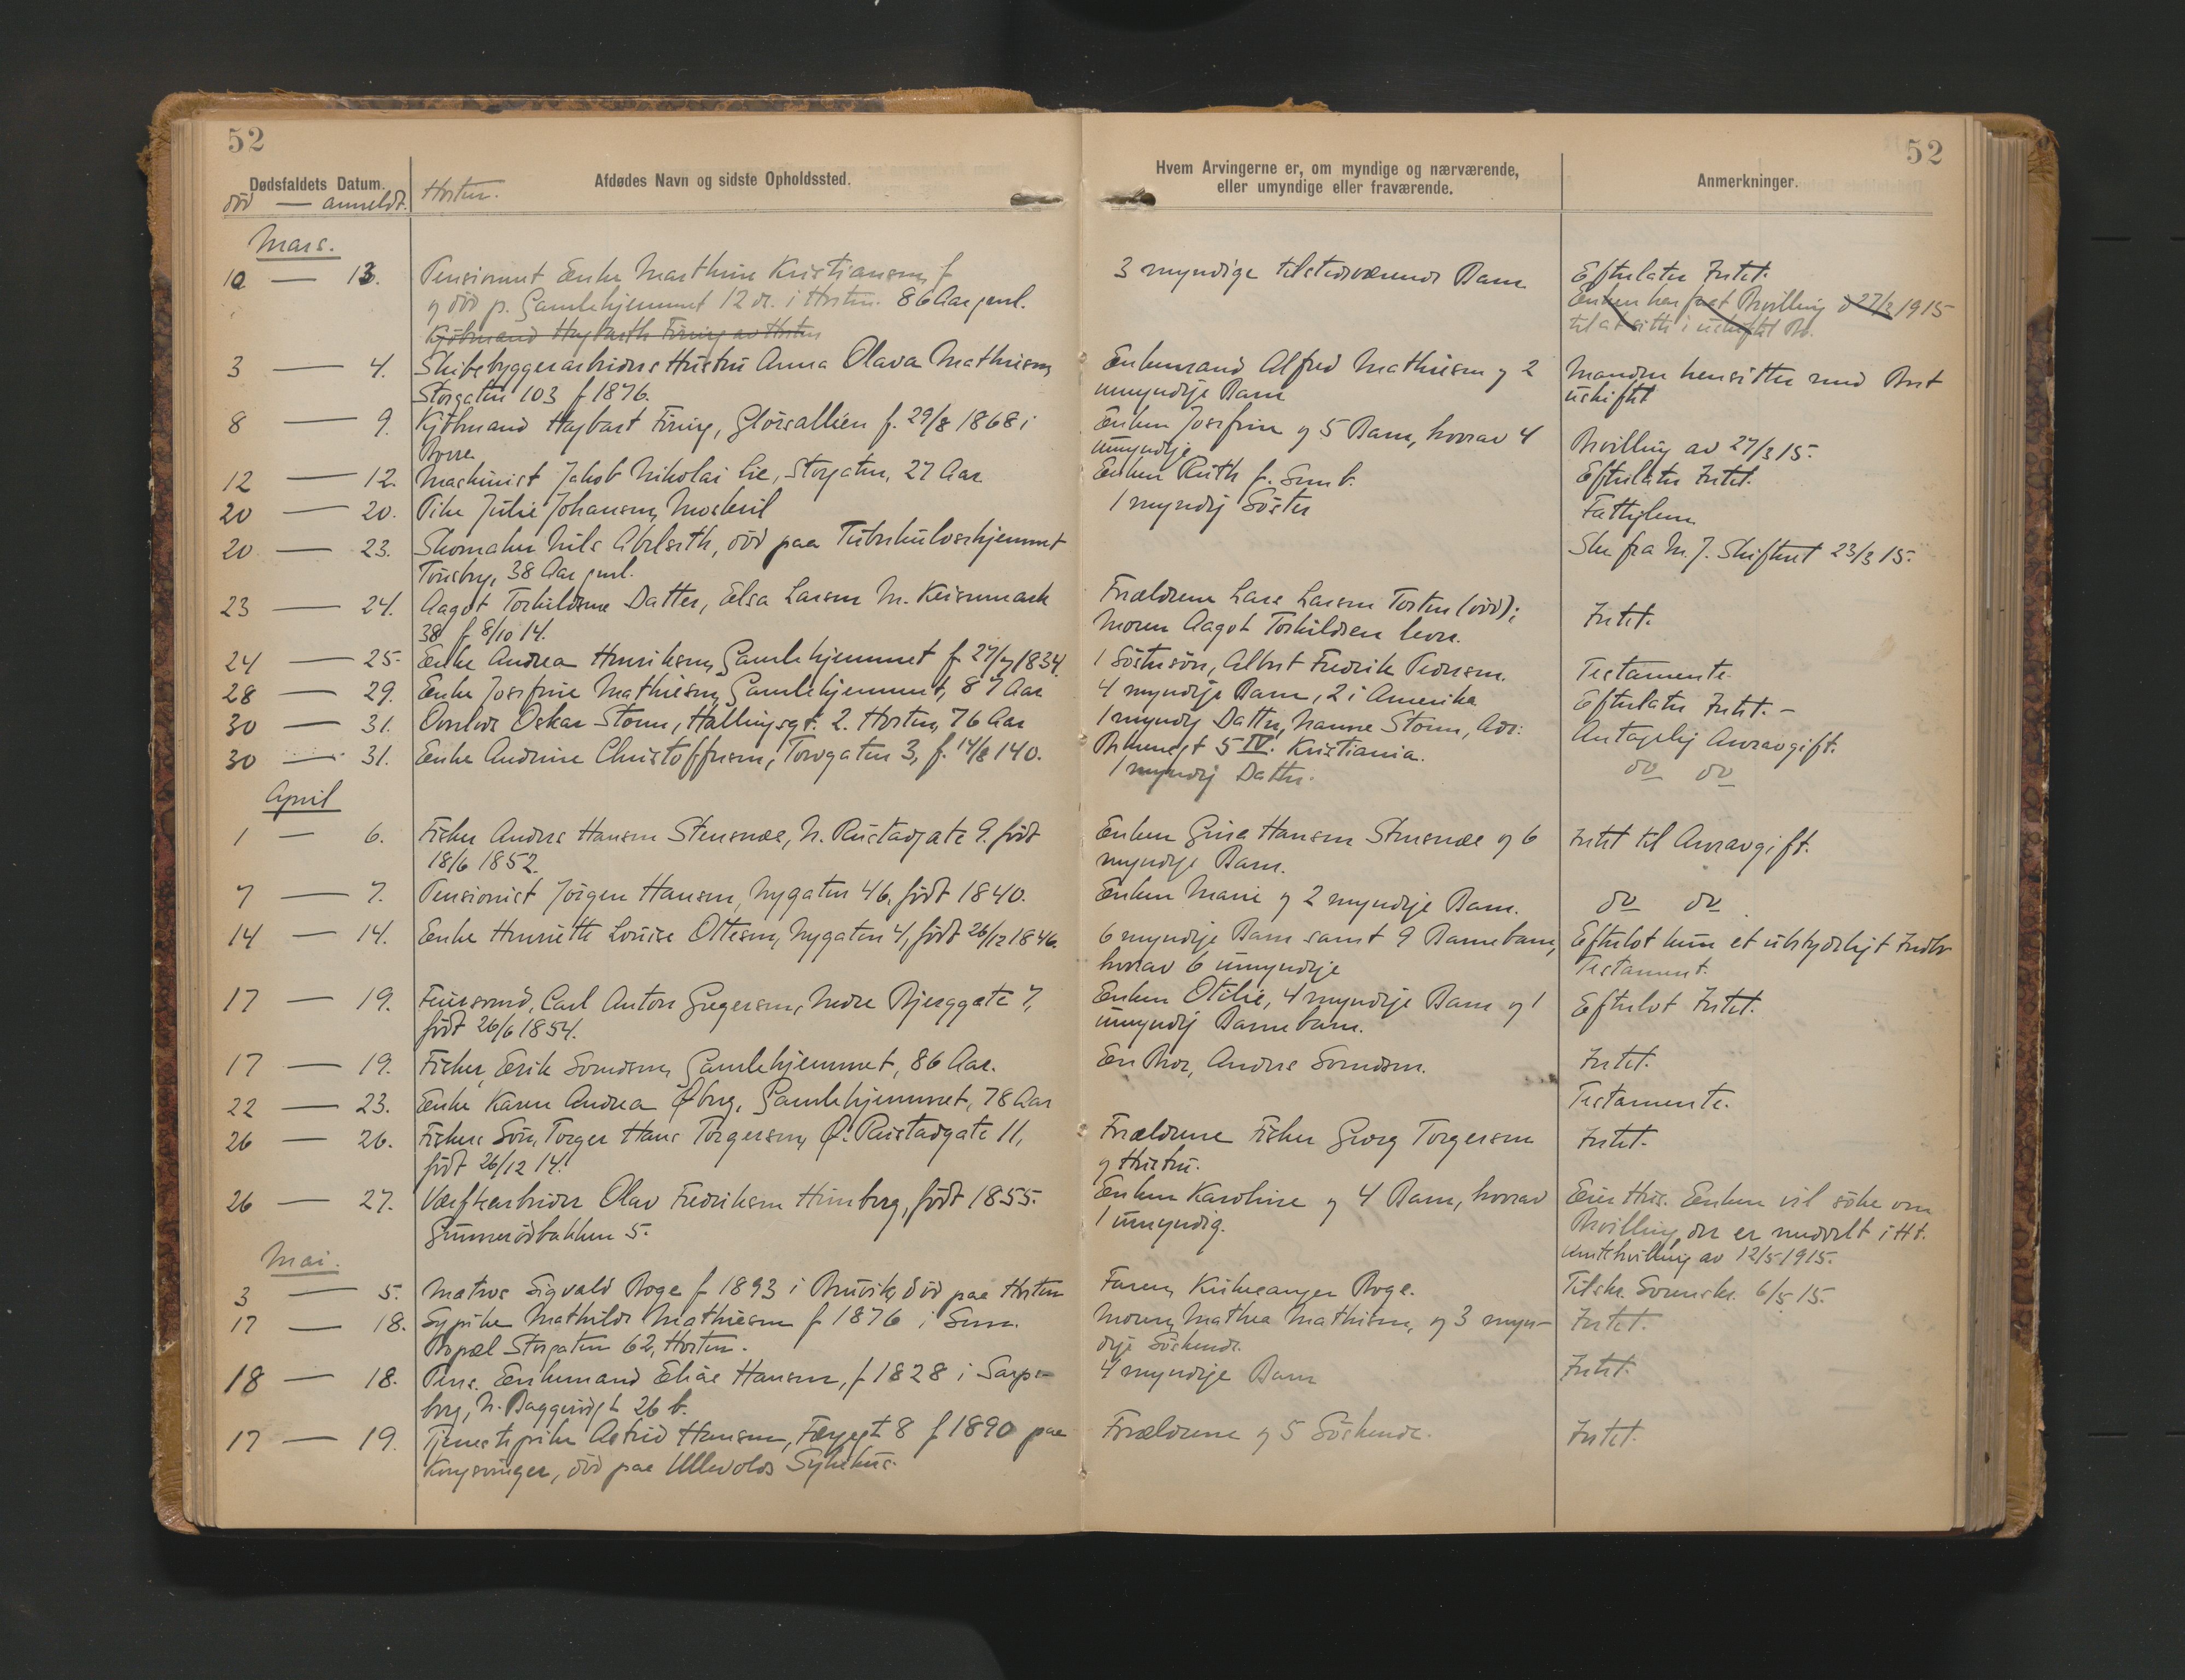 52
52
Dødsfaldets Datum.
død — anmeldt.
Horten.
Afdødes Navn og sidste Opholdssted.
Hvem Arvingerne er, om myndige og nærværende,
eller umyndige eller fraværende.
Anmerkninger.
Mars.
10 — 13. Pensionert Enke Marthine Kristiansen, f
og död p. Gamlehjemmet 12 ds. i Horten. 86 Aar gml.
3 myndige tilstedeværende Barn
Efterlater Intet.
Enken har faat Bevilling d 27/3 1915
til at sitte i uskiftet Bo.
Kjøbmand Hagbarth Firing av Horten
3 — 4. Skibsbyggerarbeiders Hustru Anna Olava Mathiesen,
Storgaten 103 f 1876.
Enkemand Alfred Mathiesen og 2
umyndige Barn
Manden hensitter med Boet
uskiftet
8 — 9. Kjøbmand Hagbart Firing, Glörsallien f. 29/8 1868 i
Borre.
Enken Josefine og 5 Barn, hvorav 4
umyndige
Bevilling av 27/3 15.
12 — 12. Maskinist Jakob Nikolai Lie, Storgaten, 27 Aar
Enken Ruth f.
Efterlater Intet.
20 — 20. Pike Julie Johansen,
1 myndig Söster
Fattiglem
20 — 23. Skomaker Nils Abelseth, död paa Tuberkulosehjemmet
Tönsberg, 38 Aar gml.
Skr fra M. J. Skifteret 23/3 15.
23 — 24. Aagot Torkildsens Datter, Elsa Larsen N. Keisemark
38 f 8/10 14.
Forældrene Lars Larsen Torten (död);
Moren Aagot Torkildsen lever.
Intet.
24 — 25. Enke Andrea Henriksen, Gamlehjemmet f 27/7 1834.
1 Söstersön, Albert Fredrik Pedersen.
Testamente.
28 — 29. Enke Josefine Mathiesen, Gamlehjemmet, 87 Aar
4 myndige Barn, 2 i Amerika
Efterlater Intet. —
30 — 31. Oskar Storm, Hallingsgt. 2. Horten, 76 Aar
1 myndig Datter, Nanne Storm, Adr:
5 IV. Kristiania.
Antagelig Arveavgift.
30 — 31. Enke Andrine Christoffersen, Torvgaten 3, f. 14/8 140.
1 myndig Datter.
do do
April
1 — 6. Fisker Anders Hansen Stensnæs, N. Rustadgate 9. födt
18/6 1852.
Enken Gina Hansen Stensnæs og 6
myndige Barn.
Intet til Arveavgift.
7 — 7. Pensionist Jörgen Hansen, Nygaten 46, födt 1840.
Enken Marie og 2 myndige Barn.
do do
14 — 14. Enke Henriette Louise Ottesen, Nygaten 4, födt 26/12 1846.
6 myndige Barn samt 9 Barnebarn,
hvorav 6 umyndige
Efterlot kun et ubetydeligt Indbo
Testament.
17 — 19. Carl Anton Gregersen, Nedre Bjerggate 7,
födt 26/6 1854.
Enken Otilie, 4 myndige Barn og 1
umyndig Barnebarn.
Efterlot Intet.
17 — 19. Fisker, Erik Svendsen, Gamlehjemmet, 86 Aar.
En Bror, Anders Svendsen.
Intet.
22 — 23. Enke Karen Andrea Öberg, Gamlehjemmet, 78 Aar
Testamente.
26 — 26. Fiskers Sön, Torger Hans Torgersen, Ö. Rustadgate 11,
födt 26/12 14.
Forældrene Fisker Georg Torgersen
og Hustru.
Intet.
26 — 27. Værftsarbeider Olav Fredriksen Himberg, födt 1855.
Gunnerödbakken 5.
Enken Karoline og 4 Barn, hvorav
1 umyndig.
Eier Hus. Enken vil söke om
Bevilling, der er meddelt i H t.
Amtsbevilling av 12/5 1915.
Mai.
3 — 5. Matros Sigvald Roge f 1893 i Bruvik, död paa Horten
Faren, Roge.
Tilskr. 6/5 15.
17 — 18. Sypike Mathilde Mathiesen f 1876 i
Bopæl Storgaten 62, Horten.
Moren, Mathea Mathisen, og 3 myn-
dige Söskende.
Intet.
18 — 18. Pens. Enkemand Elias Hansen, f 1828 i Sarps-
borg, N. Baggerödgt 26 b.
4 myndige Barn
Intet.
17 — 19. Tjenestepike Astrid Hansen, Færgegt 8 f 1890 paa
Kongsvinger, död paa Ullevolds Sykehus.
Forældrene og 5 Söskende.
Intet.